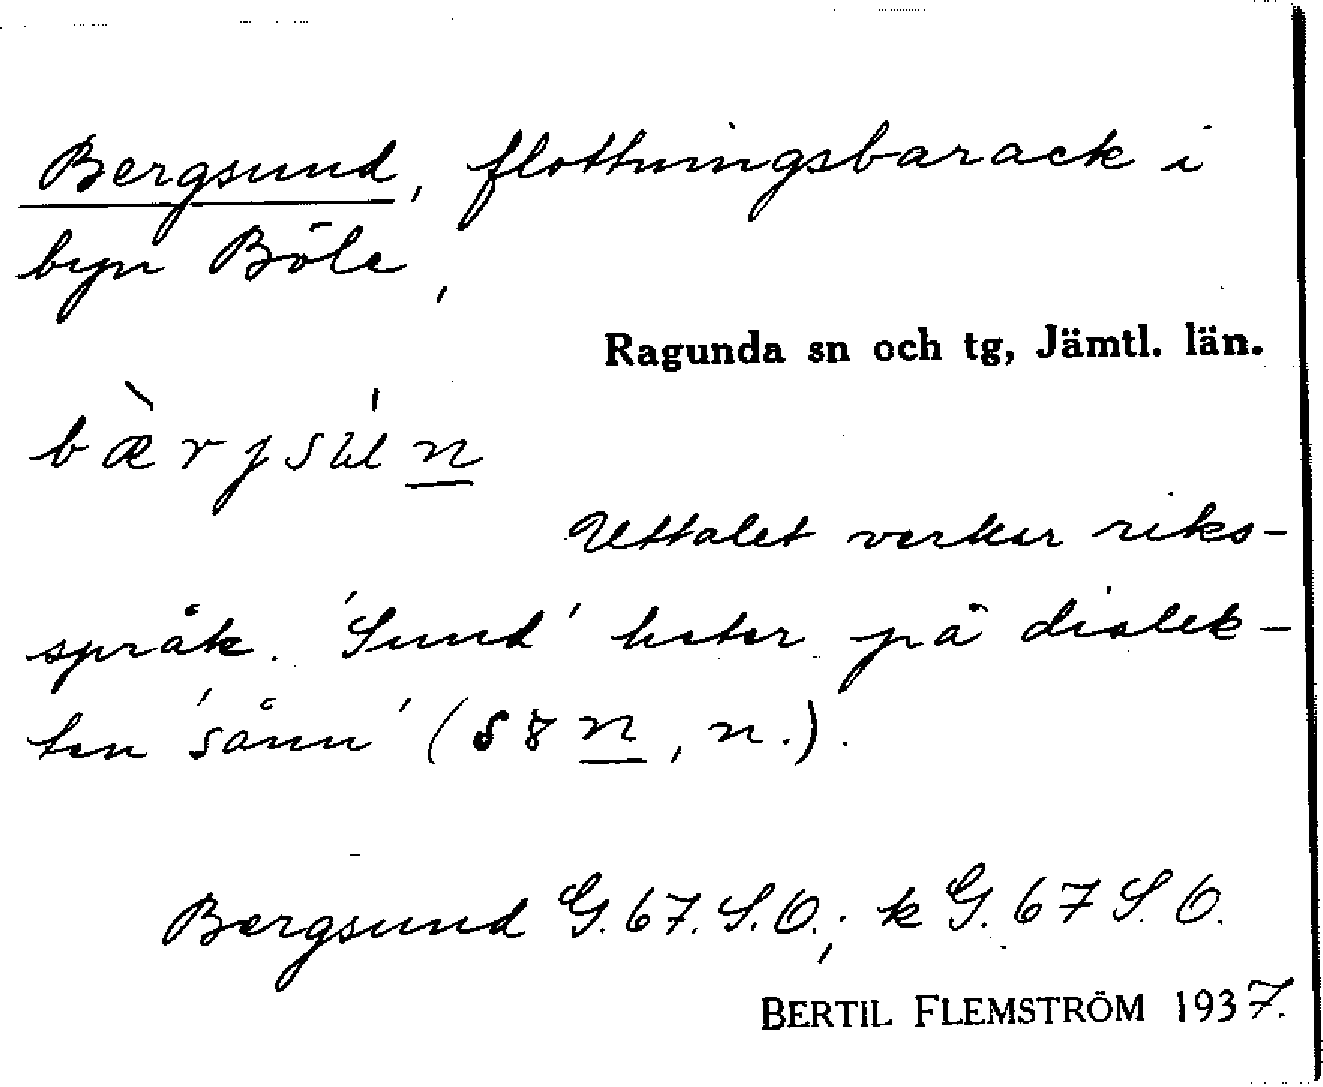 Bergsund, flottningsbarack i
byn Böle,
Ragunda sn och tg, Jämtl. län.
bæ̀rjsʉ́n
Uttalet verkar riks-
språk. 'Sund' heter på dialek-
ten 'sånn' (s8n, n.).
Bergsund G. 67. S.O.; k G. 67 S.O.
BERTIL FLEMSTRÖM 1937.